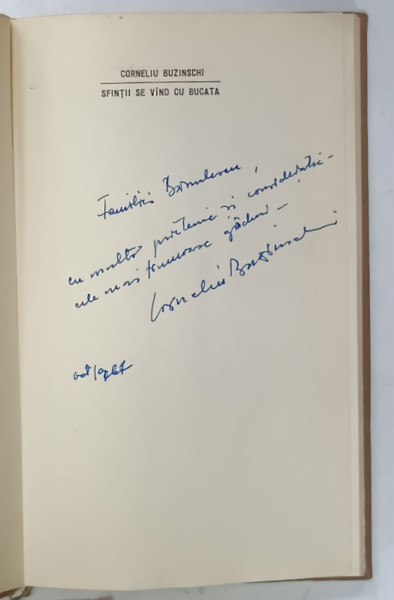 CORNELIU BUZINSCHI
SFINȚII SE VÎND CU BUCATA
Familiei
cu multă prietenie și considerație -
cele mai frumoase gânduri -
Corneliu Buzinschi